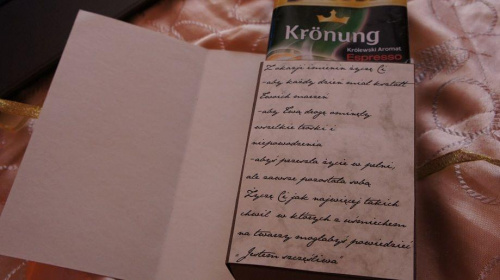 Krönung
Królewski Aromat
Espresso
Z okazji imienin życzę Ci
-aby każdy dzień miał kształt
Twoich marzeń
-aby Twą drogę ominęły
wszelkie troski i
niepowodzenia
-abyś przeszła życie w pełni,
ale zawsze pozostała sobą
Życzę Ci jak najwięcej takich
chwil w których z uśmiechem
na twarzy mogłabyś powiedzieć
"Jestem szczęśliwa"